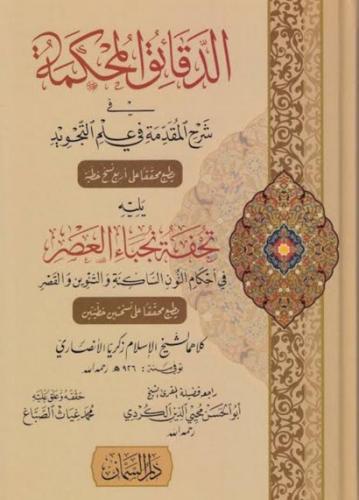 الدقائق المحكمة
في
شرح المقدمة في علم التجويد
يطبع محققا على أربع نسخ خطية
يليه
تحفة نجباء العصر
في أحكام النون الساكنة والتنوين والقصر
يطبع محققا على نسختين خطيتين
كلاهما لشيخ الإسلام زكريا الأنصاري
توفي سنة: ٩٢٦ هـ رحمه الله
راجعه فضيلة المقرئ الشيخ
أبو الحسن محيي الدين الكردي
رحمه الله
حققه وعلق عليه
محمد غياث الصباغ
دار السمان